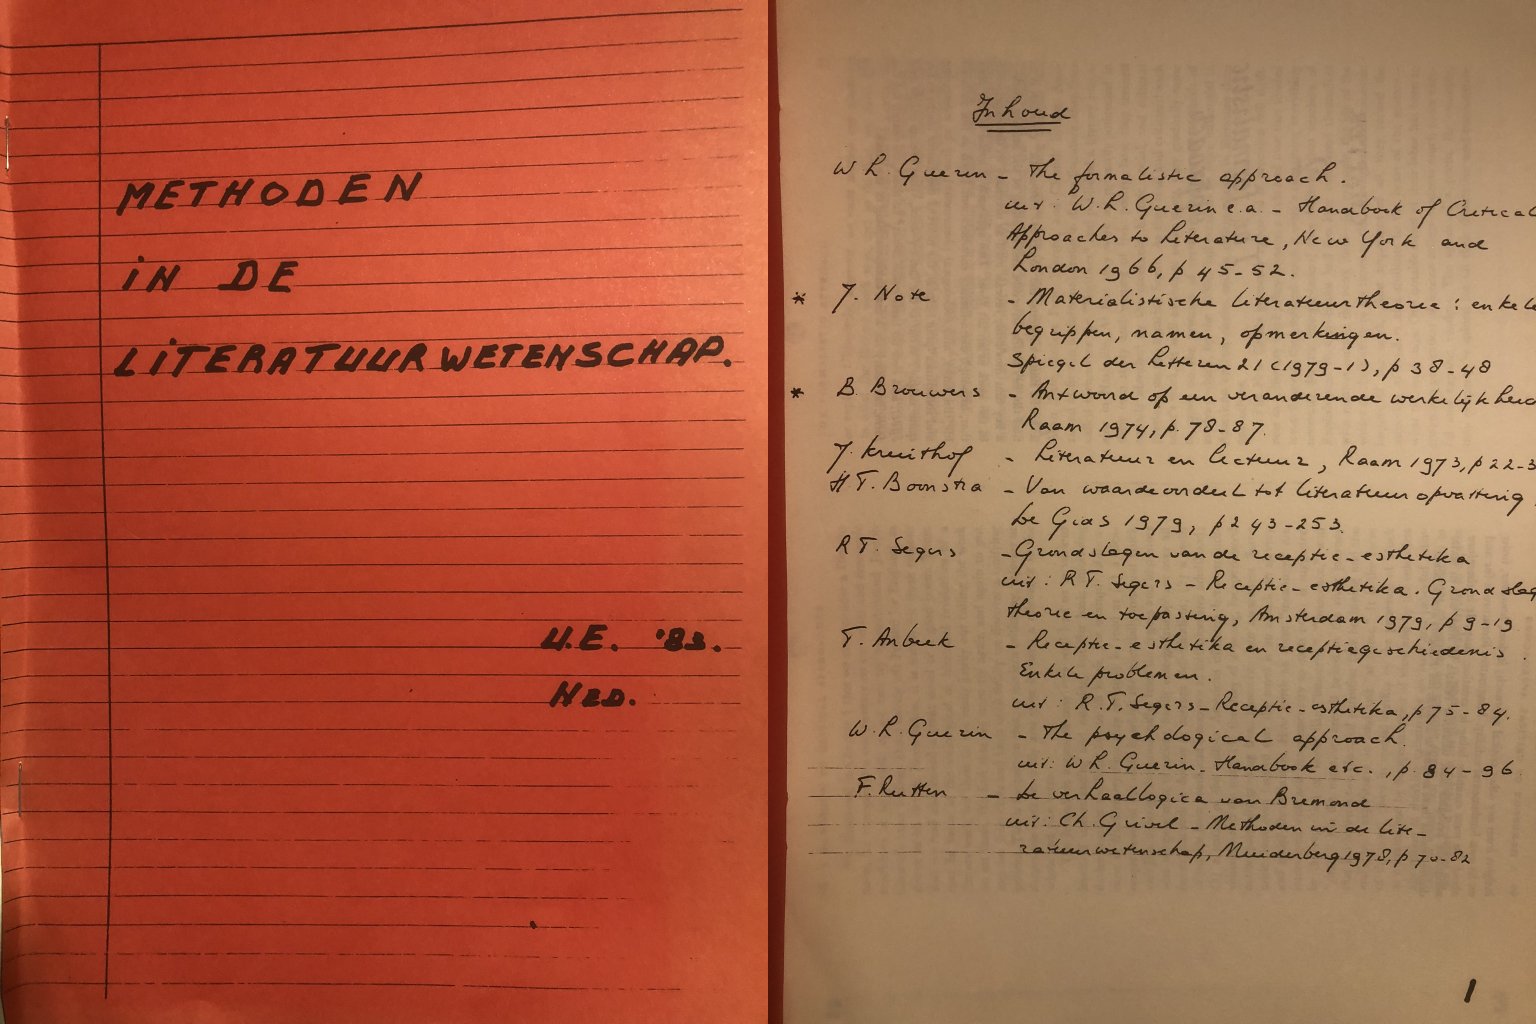 METHODEN
IN DE
LITERATUURWETENSCHAP.
U.E. '83.
NED.
Inhoud
W L. Guerin - The formalistic approach.
uit: W.L. Guerin e.a. - Handbook of Critical
Approaches to Literature, New York and
London 1966, p 45-52.
* J. Note - Materialistische literatuurtheorie: enkele
begrippen, namen, opmerkingen.
Spiegel der Letteren 21 (1979-1), p 38-48
* B. Brouwers - Antwoord op een veranderende werkelijkheid
Raam 1974, p. 78-87.
J. Kruithof - Literatuur en lectuur, Raam 1973, p 22-3
H T. Boonstra - Van waardeoordeel tot literatuuropvatting.
De Gids 1979, p 243-253.
R T. Segers - Grondslagen van de receptie-esthetika
uit: R T. Segers - Receptie-esthetika. Grondslag
theorie en toepassing, Amsterdam 1979, p 9-19
T. Anbeek - Receptie-esthetika en receptiegeschiedenis.
Enkele problemen.
uit: R.T. Segers - Receptie-esthetika, p 75-84.
W.L. Guerin - The psychological approach.
uit: W L. Guerin - Handbook etc., p. 84-96
F. Rutten - De verhaallogica van Bremond
uit: Ch. Grivel - Methoden in de lite-
ratuurwetenschap, Muiderberg 1978, p 70-82
1